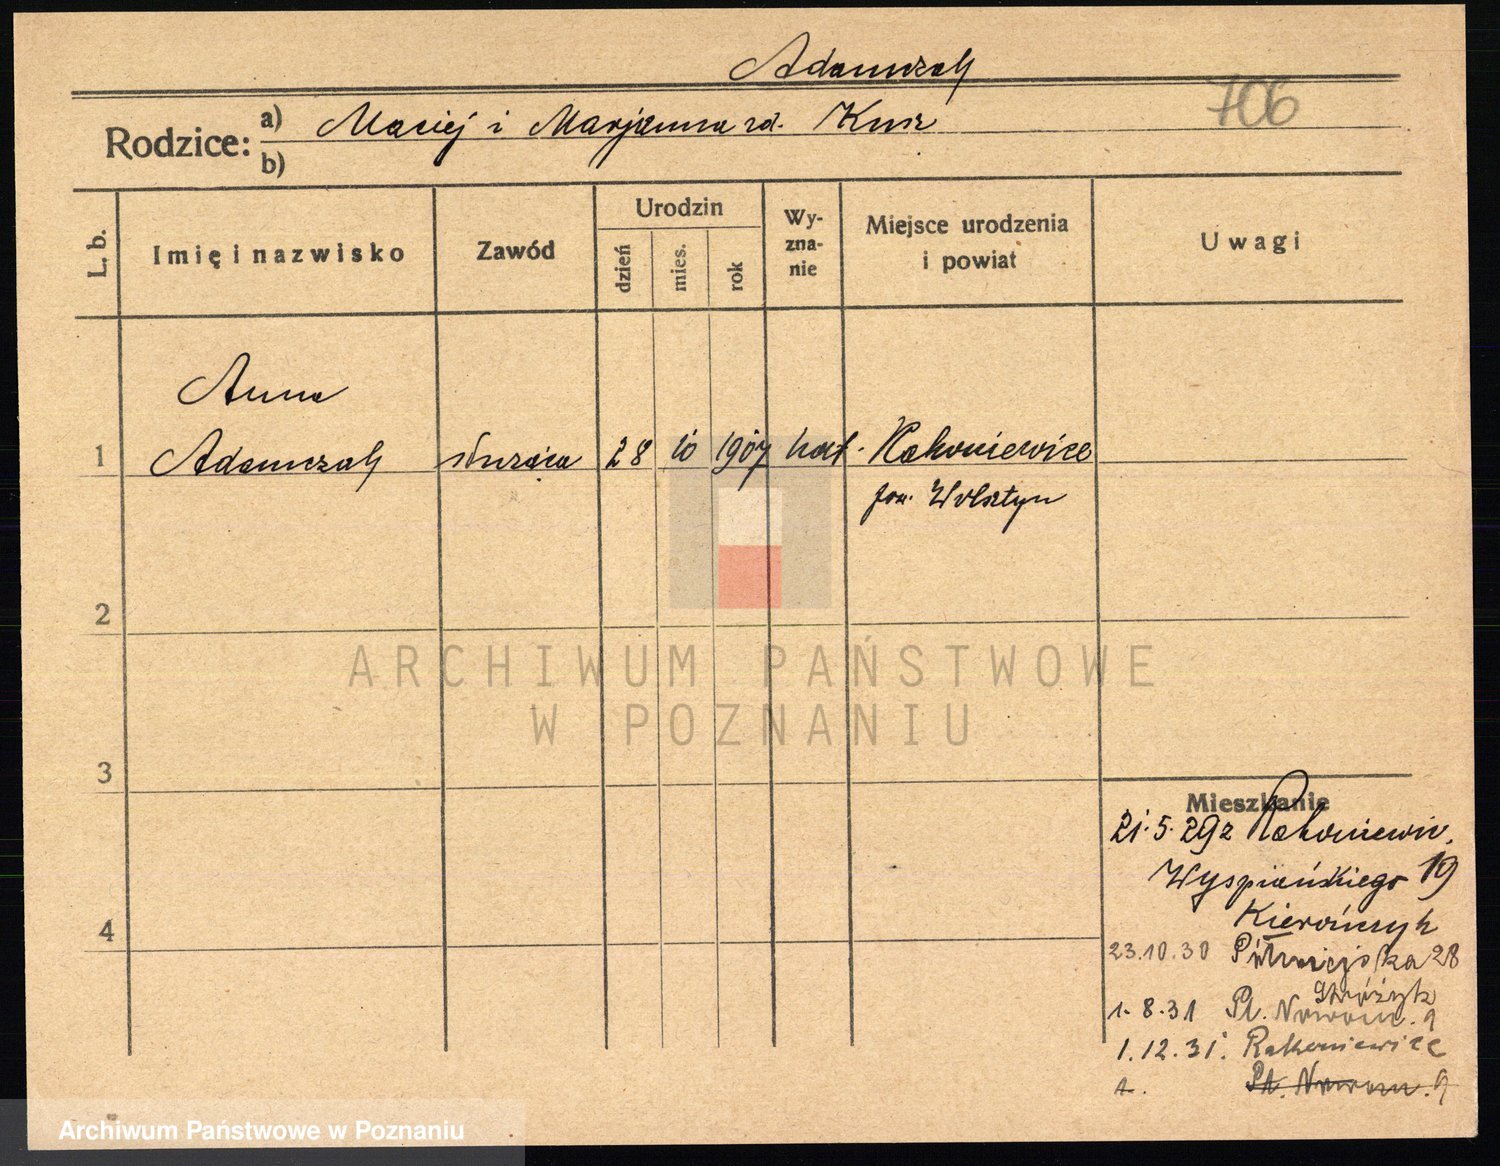 Adamczak
706
Rodzice: a) Maciej i Marjanna zd. Knisz
b)
L. b. Imię i nazwisko Zawód Urodzin dzień mies. rok Wy-zna-nie Miejsce urodzenia i powiat Uwagi
Anna
1 Adamczak służąca 28 10 1907 kat. Rakoniewice
pow. Wolsztyn
2
ARCHIWUM PAŃSTWOWE
W POZNANIU
3
Mieszkanie
21.5.29 z Rakoniewic.
Wyspiańskiego 19
Kierończyk
4
23.10.30 Półwiejska 28
Stróżyk
1.8.31 Pl. Nowom. 9
1.12.31. Rakoniewice
1. Pl. Nowom. 9
Archiwum Państwowe w Poznaniu